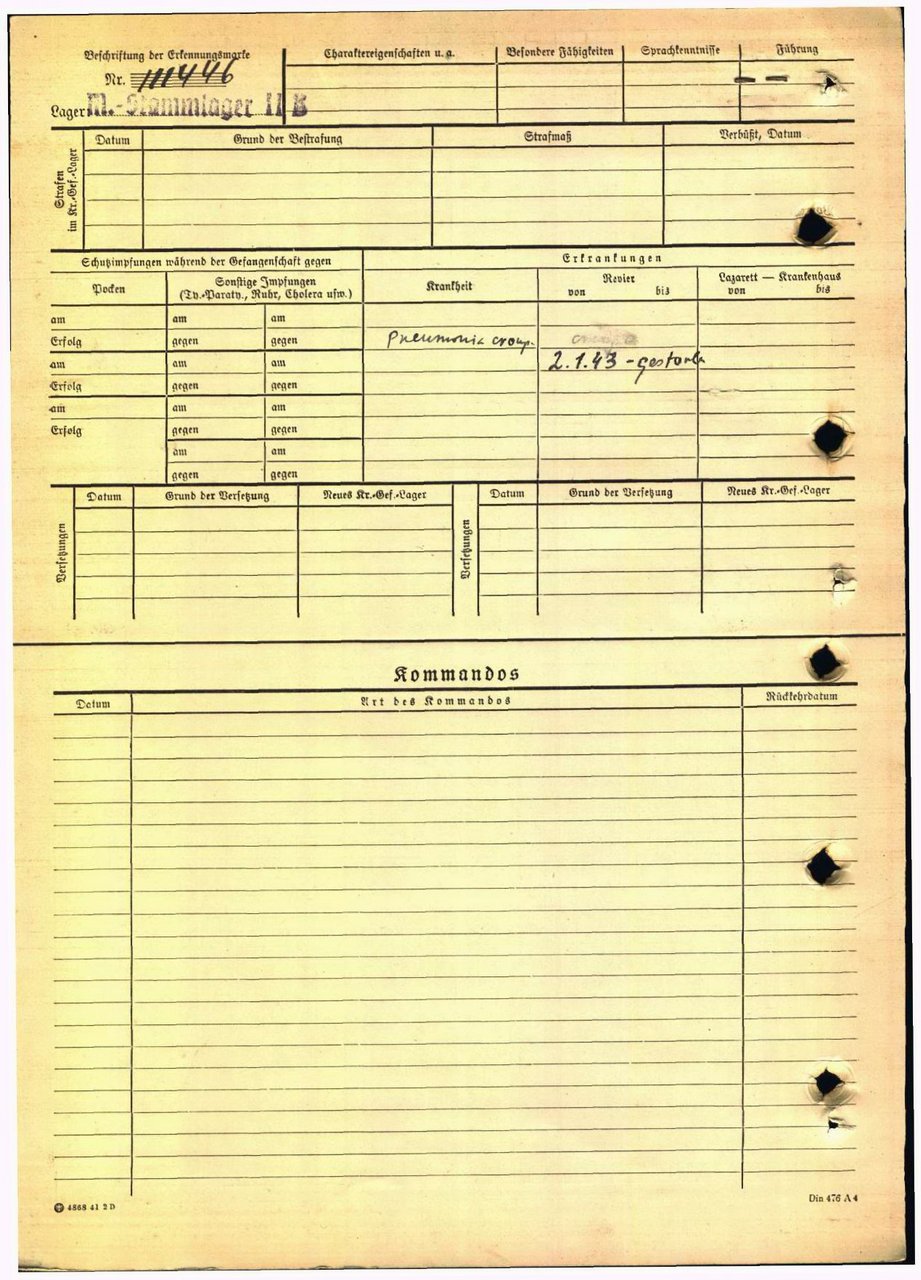 Beschriftung der Erkennungsmarke
Nr. 111446
Lager M.-Stammlager II B
Charaktereigenschaften u. a.
Besondere Fähigkeiten
Sprachkenntnisse
Führung
Strafen im Kr.-Gef.-Lager
Datum
Grund der Bestrafung
Strafmaß
Verbüßt, Datum
Schutzimpfungen während der Gefangenschaft gegen
Erkrankungen
Pocken
Sonstige Impfungen
(Ty.-Paraty., Ruhr, Cholera usw.)
Krankheit
Revier
von bis
Lazarett — Krankenhaus
von bis
am am am
Erfolg gegen gegen Pneumonia croup.
am am am 2.1.43 - gestorb
Erfolg gegen gegen
am am am
Erfolg gegen gegen
am am
gegen gegen
Versetzungen
Datum Grund der Versetzung Neues Kr.-Gef.-Lager
Versetzungen
Datum Grund der Versetzung Neues Kr.-Gef.-Lager
Kommandos
Datum Art des Kommandos Rückkehrdatum
4868 41 2 D
Din 476 A 4